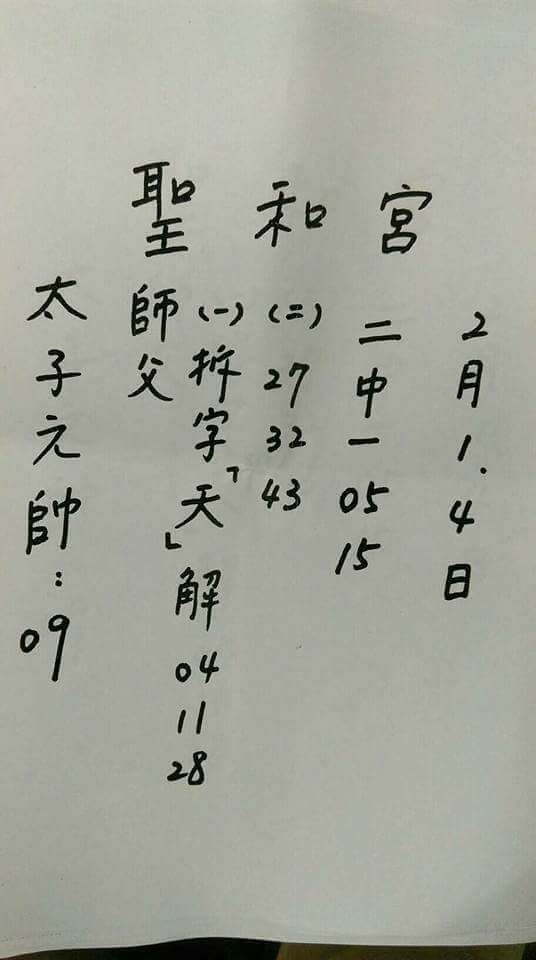 聖和宮
2月1.4日
二中一 05 15
(二) 27 32 43
(一) 拆字「天」解 04 11 28
師父
太子元帥:09